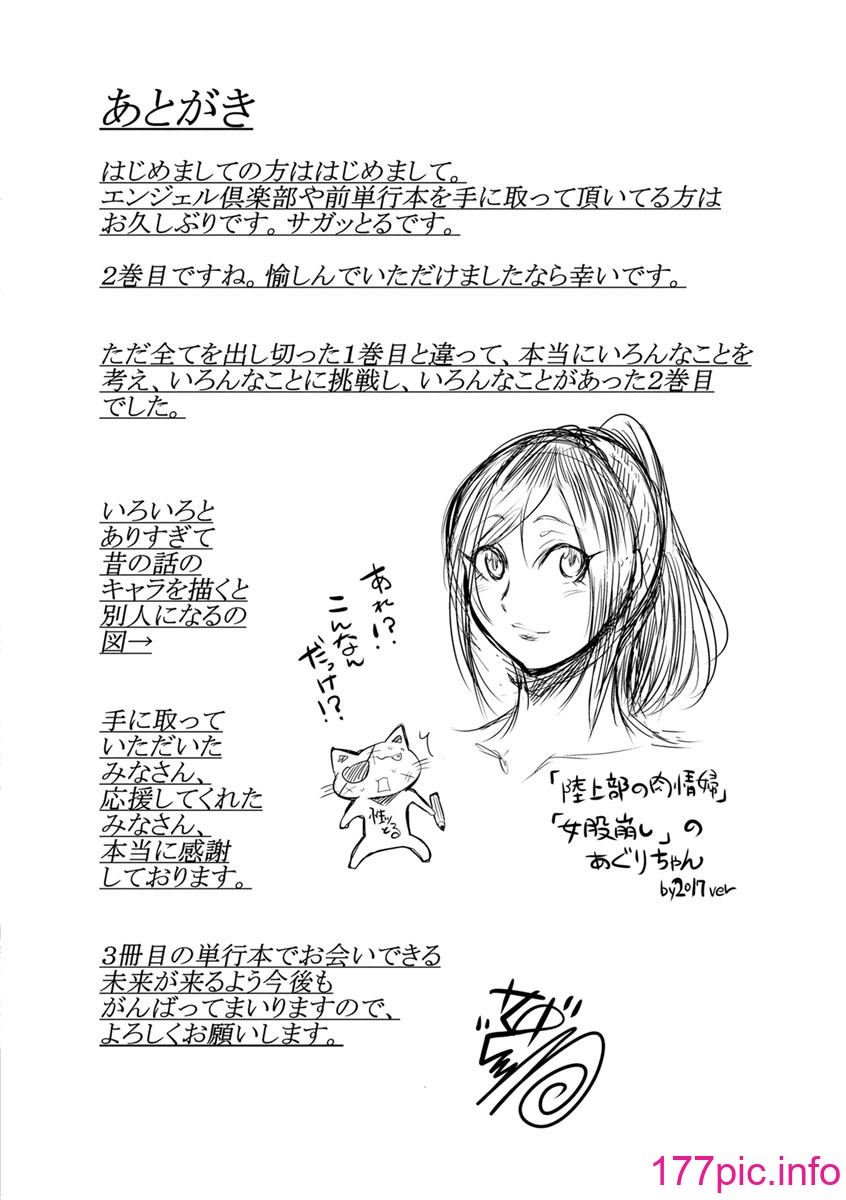 あとがき
はじめましての方ははじめまして。
エンジェル倶楽部や前単行本を手に取って頂いてる方は
お久しぶりです。サガッとるです。
2巻目ですね。愉しんでいただけましたなら幸いです。
ただ全てを出し切った1巻目と違って、本当にいろんなことを
考え、いろんなことに挑戦し、いろんなことがあった2巻目
でした。
いろいろと
ありすぎて
昔の話の
キャラを描くと
別人になるの
図→
あれ!?
こんなん
だっけ!?
手に取って
いただいた
みなさん、
応援してくれた
みなさん、
本当に感謝
しております。
「陸上部の肉情婦」
「女股崩し」の
あぐりちゃん
by2017ver
3冊目の単行本でお会いできる
未来が来るよう今後も
がんばってまいりますので、
よろしくお願いします。
177pic.info